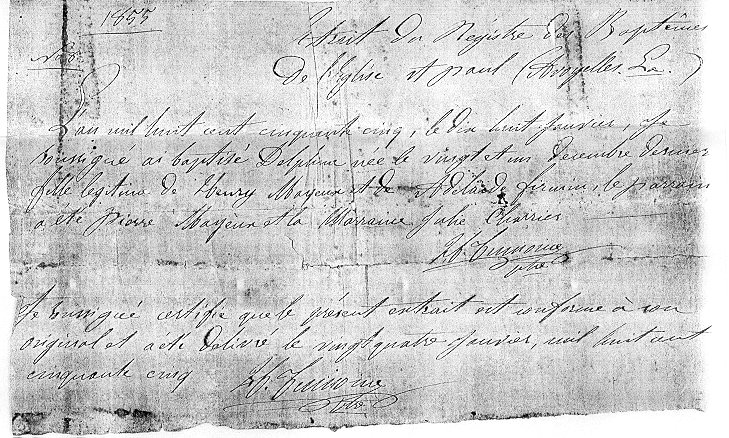 1855
Extrait du Registre des Baptêmes
No 8
De l'Eglise st paul (Avoyelles. La.)
L'an mil huit cent cinquante cinq, le dix huit Janvier, Je
soussigné ai baptisé Delphine née le vingt et un decembre dernier
fille legitime de Henry Mayeux et de Adelaide firmin, le parrain
a été pierre Mayeux et la Marraine Julie Charrier
pbre
Je soussigné certifie que le présent extrait est conforme à son
original et a été délivré le vingt quatre Janvier, mil huit cent
cinquante cinq
pbre